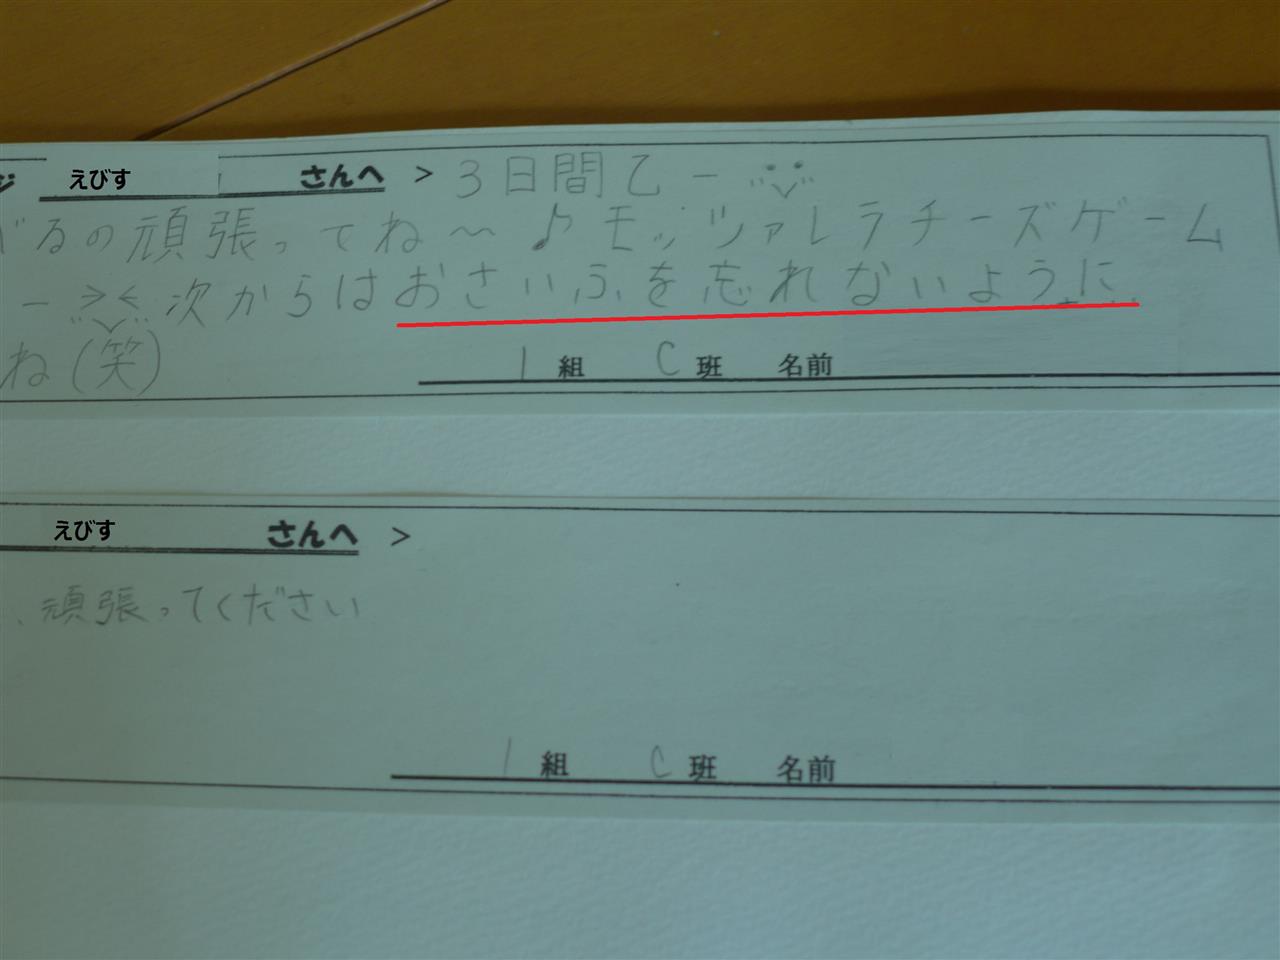 えびす さんへ > 3日間乙ー
るの頑張ってね〜♪モッツァレラチーズゲーム
ー >< 次からはおさいふを忘れないように
ね(笑)
1 組 C 班 名前
えびす さんへ >
、頑張ってください
1 組 C 班 名前